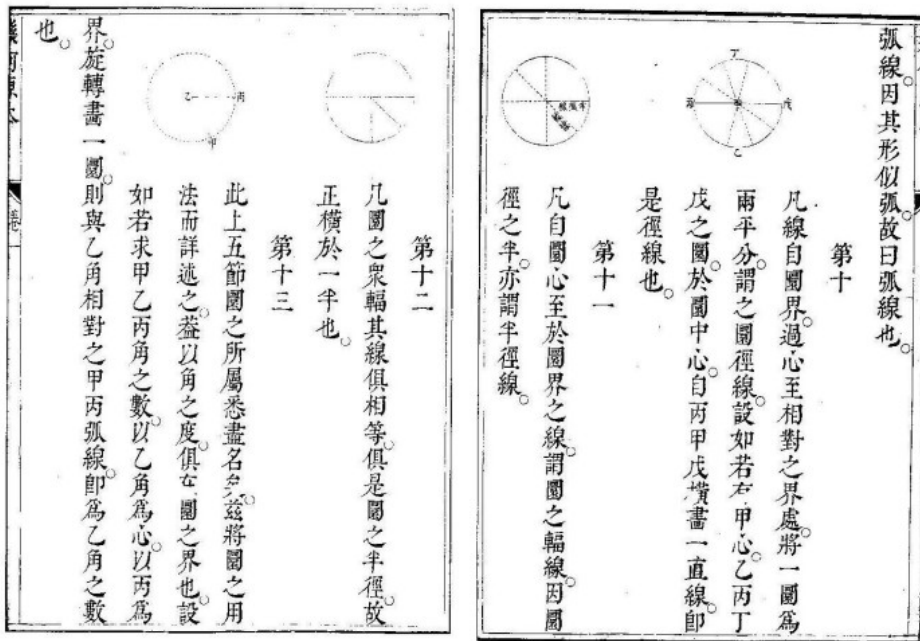 弧線。因其形似弧。故曰弧線也。
第十
凡線自圜界。過心至相對之界處。將一圜爲
兩平分。謂之圜徑線。設如若有甲心。乙丙丁
戊之圜。於圜中心。自丙甲戊橫畫一直線。卽
是徑線也。
第十一
凡自圜心至於圜界之線。謂圜之輻線。因圜
徑之半。亦謂半徑線。
丁
丙
甲
戊
乙
第十二
凡圜之衆輻其線俱相等。俱是圜之半徑故
正橫於一半也。
第十三
此上五節圜之所屬悉盡名矣。茲將圜之用
法而詳述之。葢以角之度。俱在圜之界也。設
如若求甲乙丙角之數。以乙角爲心。以丙爲
界。旋轉畫一圜。則與乙角相對之甲丙弧線。卽爲乙角之數
也。
乙
丙
甲
卷一